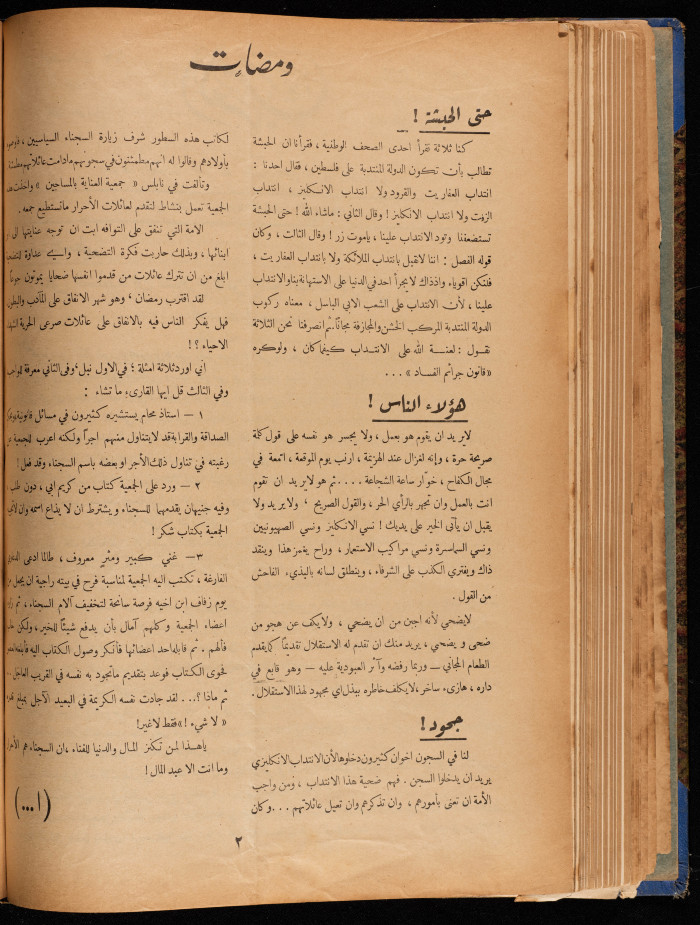 ومضات
حتى الحبشة !
كنا ثلاثة نقرأ احدى الصحف الوطنية ، فقرأنا ان الحبشة
تطالب بأن تكون الدولة المنتدبة على فلسطين ، فقال احدنا :
انتداب العفاريت والقرود ولا انتداب الانكليز ، انتداب
الزفت ولا انتداب الانكليز ! وقال الثاني : ماشاء الله ! حتى الحبشة
تستضعفنا وتود الانتداب علينا ، ياموت زر ! وقال الثالث ، وكان
قوله الفصل : اننا لانقبل بانتداب الملائكة ولا بانتداب العفاريت ،
فلنكن اقوياء واذذاك لايجرأ احد في الدنيا على الاستهانة بنا والانتداب
علينا ، لأن الانتداب على الشعب الابي الباسل ، معناه ركوب
الدولة المنتدبة المركب الخشن والمجازفة مجاناً ثم انصرفنا نحن الثلاثة
نقول : لعنة الله على الانتداب كيفما كان ، ولو كره
« قانون جرائم الفساد » . . .
هؤلاء الناس !
لايريد ان يقوم هو بعمل ، ولا يجسر هو نفسه على قول كلمة
صريحة حرة ، وإنه لغزال عند الهزيمة ، ارنب يوم الموقعة ، انعمة في
مجال الكفاح ، خوّار ساعة الشجاعة . . . . ثم هو لايريد ان تقوم
انت بالعمل وان تجهر بالرأي الحر ، والقول الصريح ، ولايريد ولا
يقبل ان يأتى الخير على يديك ! نسي الانكليز ونسي الصهيونيين
ونسي السماسرة ونسي مراكيب الاستعمار ، وراح يغمز هذا وينقد
ذاك ويفتري الكذب على الشرفاء ، وينطلق لسانه بالبذيء الفاحش
من القول .
لايضحي لأنه اجبن من ان يضحي ، ولايكف عن هجو من
ضحى و يضحي ، يريد منك ان تقدم له الاستقلال تقديماً كما يقدم
الطعام المجاني — وربما رفضه وآثر العبودية عليه — وهو قابع في
داره ، هازىء ساخر ، لايكلف خاطره ببذل اي مجهود لهذا الاستقلال .
جحود !
لنا في السجون اخوان كثيرون دخلوها لأن الانتداب الانكليزي
يريد ان يدخلوا السجن . فهم ضحية هذا الانتداب ، ومن واجب
الأمة ان تعنى بأمورهم ، وان تذكرهم وان تعيل عائلاتهم . . . وكان
لكاتب هذه السطور شرف زيارة السجناء السياسيين ،
بأولادهم وقالوا له انهم مطمئنون في سجونهم مادامت عائلاتهم
وتألفت في نابلس « جمعية العناية بالمساجين »
الجمعية تعمل بنشاط لتقدم لعائلات الأحرار ماتستطيع جمعه .
الامة التي تنفق على التوافه ابت ان توجه عنايتها
ابنائها ، وبذلك حاربت فكرة التضحية ، وايــ عداوة
ابلغ من ان تترك عائلات من قدموا انفسها ضحايا يموتون جوعاً
لقد اقترب رمضان ، وهو شهر الانفاق على المآدب
فهل يفكر الناس فيه بالانفاق على عائلات صرعى الحرية
الاحياء ؟ !
أني اورد ثلاثة امثلة ؛ في الاول نبل ، وفى الثاني معرفة
وفي الثالث قل ايها القارىء ما تشاء :
١ — استاذ محام يستشيره كثيرون في مسائل قانونية
الصداقة والقرابة قد لايتناول منهم اجراً ولكنه اعرب للجمعية عن
رغبته في تناول ذلك الأجر او بعضه باسم السجناء وقد فعل !
٢ — ورد على الجمعية كتاب من كريم ابي ، دون طلب ،
وفيه جنيهان يقدمهما للسجناء ويشترط ان لا يذاع اسمه وان
الجمعية بكتاب شكر !
٣ — غني كبير ومثرٍ معروف ، طالما ادعى
الفارغة ، نكتب اليه الجمعية لمناسبة فرح في بيته راجية ان يجعل من
يوم زفاف ابن اخيه فرصة سانحة لتخفيف آلام السجناء ، ثم
اعضاء الجمعية وكلهم آمال بأن يدفع شيئاً للخير ، ولكن
فألهم . ثم قابله احد اعضائها فأنكر وصول الكتاب اليه
لفحوى الكتاب فوعد بتقديم ماتجود به نفسه في القريب العاجل . . .
ثم ماذا ؟ . . . لقد جادت نفسه الكريمة في البعيد الآجل بمبلغ
« لا شيء ! » فقط لاغير !
ياهـذا لمن تكنز المال والدنيا للفناء ، ان السجناء هم الأحرار
وما انت الا عبد المال !
( ا . . . )
٢